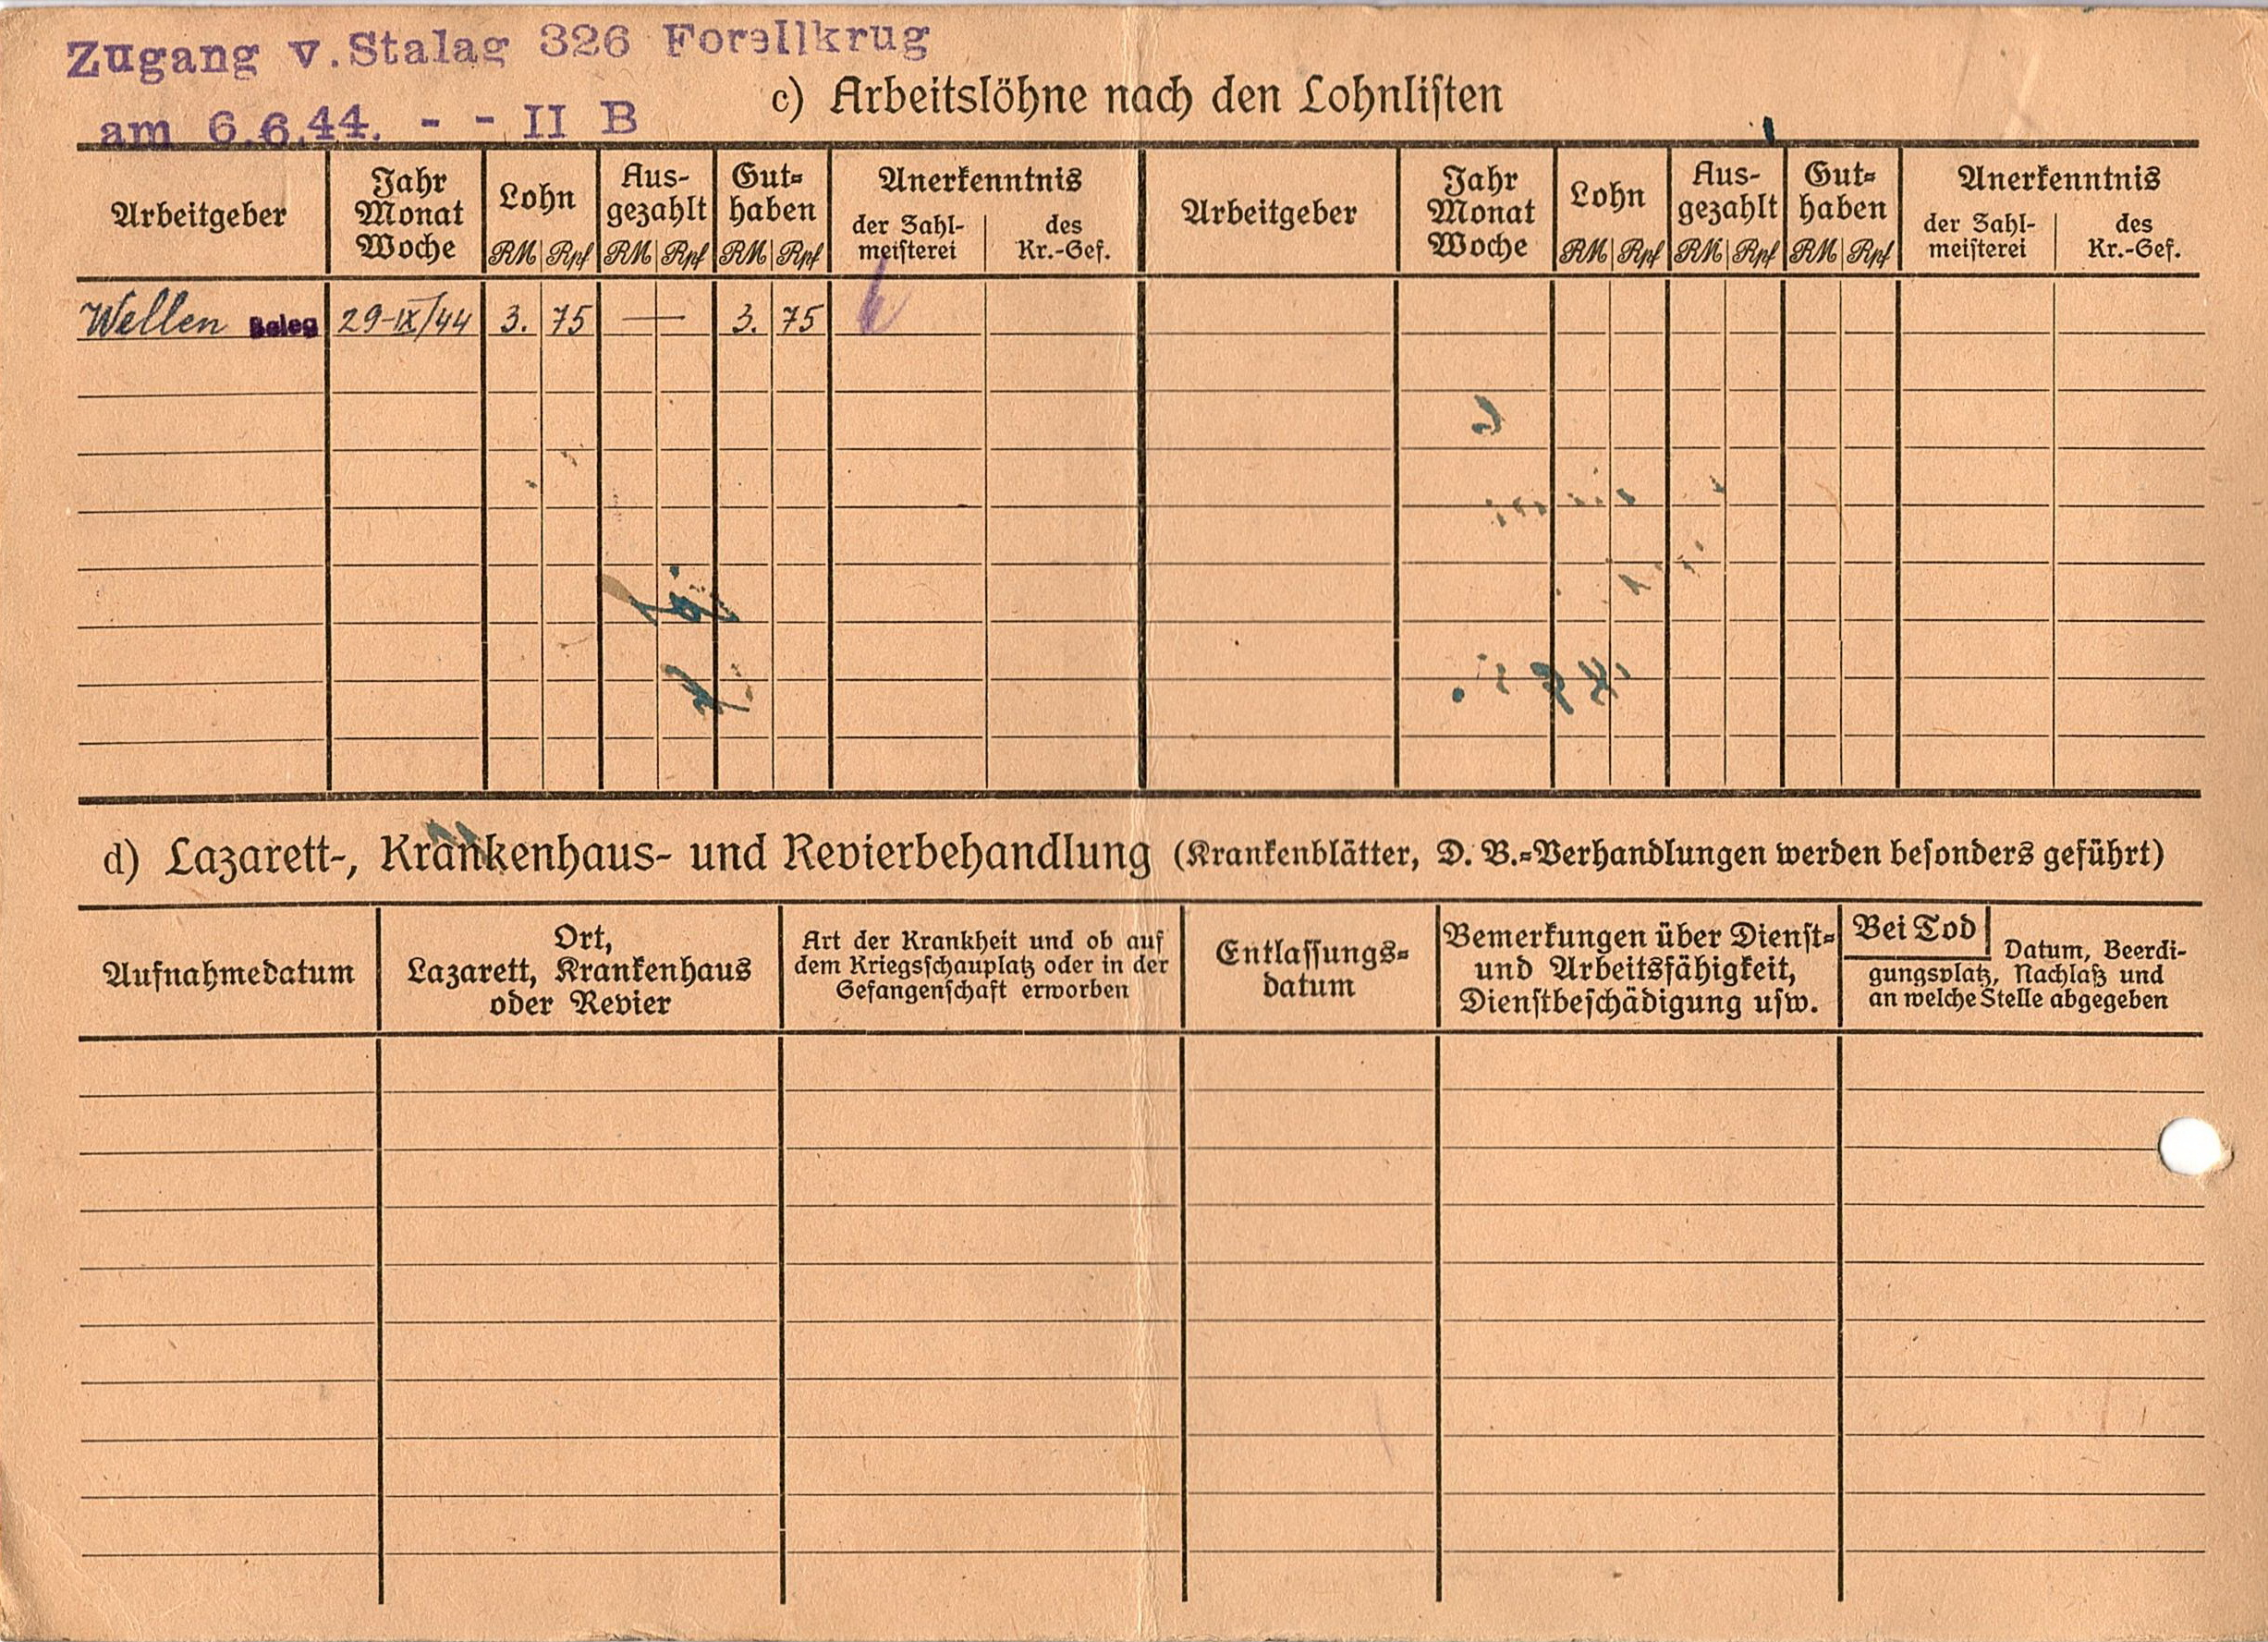 Zugang v. Stalag 326 Forellkrug
am 6.6.44. - - II B
c) Arbeitslöhne nach den Lohnlisten
Arbeitgeber
Jahr
Monat
Woche
Lohn
RM Rpf
Aus-
gezahlt
RM Rpf
Gut-
haben
RM Rpf
Anerkenntnis
der Zahl-
meisterei
des
Kr.-Gef.
Arbeitgeber
Jahr
Monat
Woche
Lohn
RM Rpf
Aus-
gezahlt
RM Rpf
Gut-
haben
RM Rpf
Anerkenntnis
der Zahl-
meisterei
des
Kr.-Gef.
Wellen Beleg 29-IX/44 3. 75 — 3. 75
d) Lazarett-, Krankenhaus- und Revierbehandlung (Krankenblätter, D. B.-Verhandlungen werden besonders geführt)
Aufnahmedatum
Ort,
Lazarett, Krankenhaus
oder Revier
Art der Krankheit und ob auf
dem Kriegsschauplatz oder in der
Gefangenschaft erworben
Entlassungs-
datum
Bemerkungen über Dienst-
und Arbeitsfähigkeit,
Dienstbeschädigung usw.
Bei Tod
Datum, Beerdi-
gungsplatz, Nachlaß und
an welche Stelle abgegeben